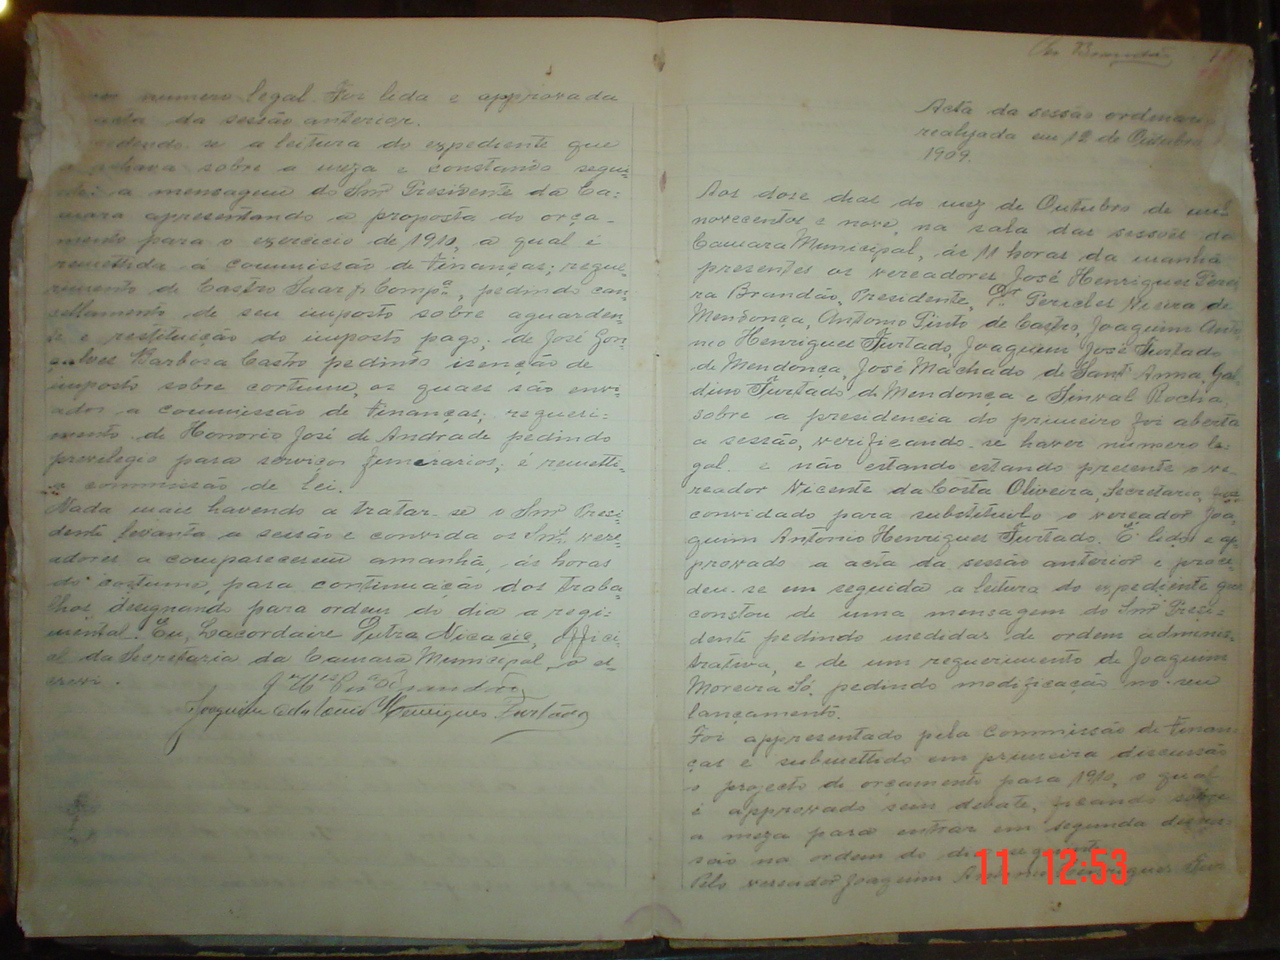 numero legal. Foi lida e approvada
acta da sessão anterior.
se a leitura do expediente que
achava sobre a meza e constando segui-
te: a mensagem do Snr. Presidente da Ca-
mara apresentando a proposta do orça-
mento para o exercicio de 1910, a qual é
remettida á commissão de Finanças; reque-
rimento de Castro Suar p Compª, pedindo can-
cellamento de seu imposto sobre aguarden-
te e restituição do imposto pago; de José Gon-
salves Barbosa Castro pedindo isenção de
imposto sobre cortume, os quaes são envi-
ados a commissão de Finanças; requeri-
mento de Honorio José de Andrade pedindo
previlegio para serviços funerarios; é remetti-
a commissão de lei.
Nada mais havendo a tratar-se o Snr. Presi-
dente levanta a sessão e convida os Snrs. vere-
adores a comparecerem amanhã, ás horas
do costume, para continuação dos traba-
lhos designando para ordem do dia a regi-
mental. Eu, Lacordaire Dutra Nicacio, offici-
al da Secretaria da Camara Municipal, o es-
crevi.
Joaquim Antonio Henriques Furtado
Acta da sessão ordinaria
realizada em 12 de Outubro
1909.
Aos dose dias do mez de Outubro de mil
novecentos e nove, na sala das sessões da
Camara Municipal, ás 11 horas da manhã
presentes os vereadores José Henriques Perei-
ra Brandão, Presidente, Dr. Pericles Vieira de
Mendonça, Antonio Pinto de Castro, Joaquim Anto-
nio Henriques Furtado, Joaquim José Furtado
de Mendonça, José Machado de Sant' Anna, Gal-
dino Furtado de Mendonça e Sinval Rocha,
sobre a presidencia do primeiro foi aberta
a sessão, verificando-se haver numero le-
gal. e não estando estando presente o ve-
reador Vicente da Costa Oliveira, Secretario,
convidado para substituil-o o vereador Joa-
quim Antonio Henriques Furtado. É lida e ap-
provada a acta da sessão anterior e proce-
deu-se em seguida a leitura do expediente que
constou de uma mensagem do Snr. Presi-
dente pedindo medidas de ordem adminis-
trativa, e de um requerimento de Joaquim
Moreira Só, pedindo modificação no seu
lançamento.
Foi appresentado pela Commissão de Finan-
ças e submettido em primeira discussão
o projecto de orçamento para 1910, o qual
é approvado sem debate, ficando sobre
a meza para entrar em segunda discus-
são na ordem do dia seguinte.
Pelo vereador Joaquim Antonio Henriques Fur-
11 12:53